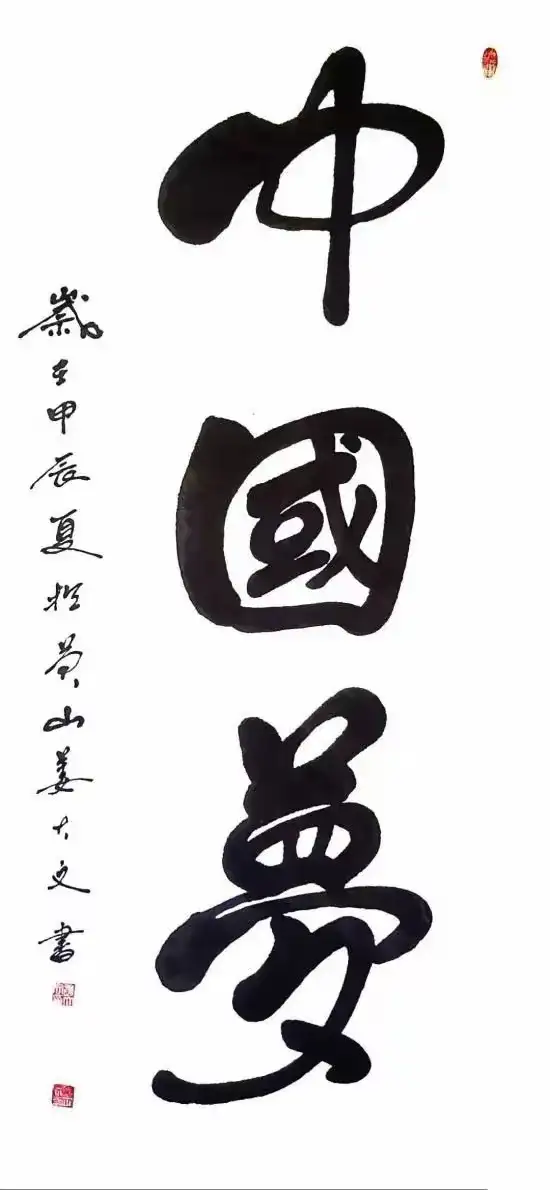 中國夢
歲在甲辰夏於黄山姜大文書